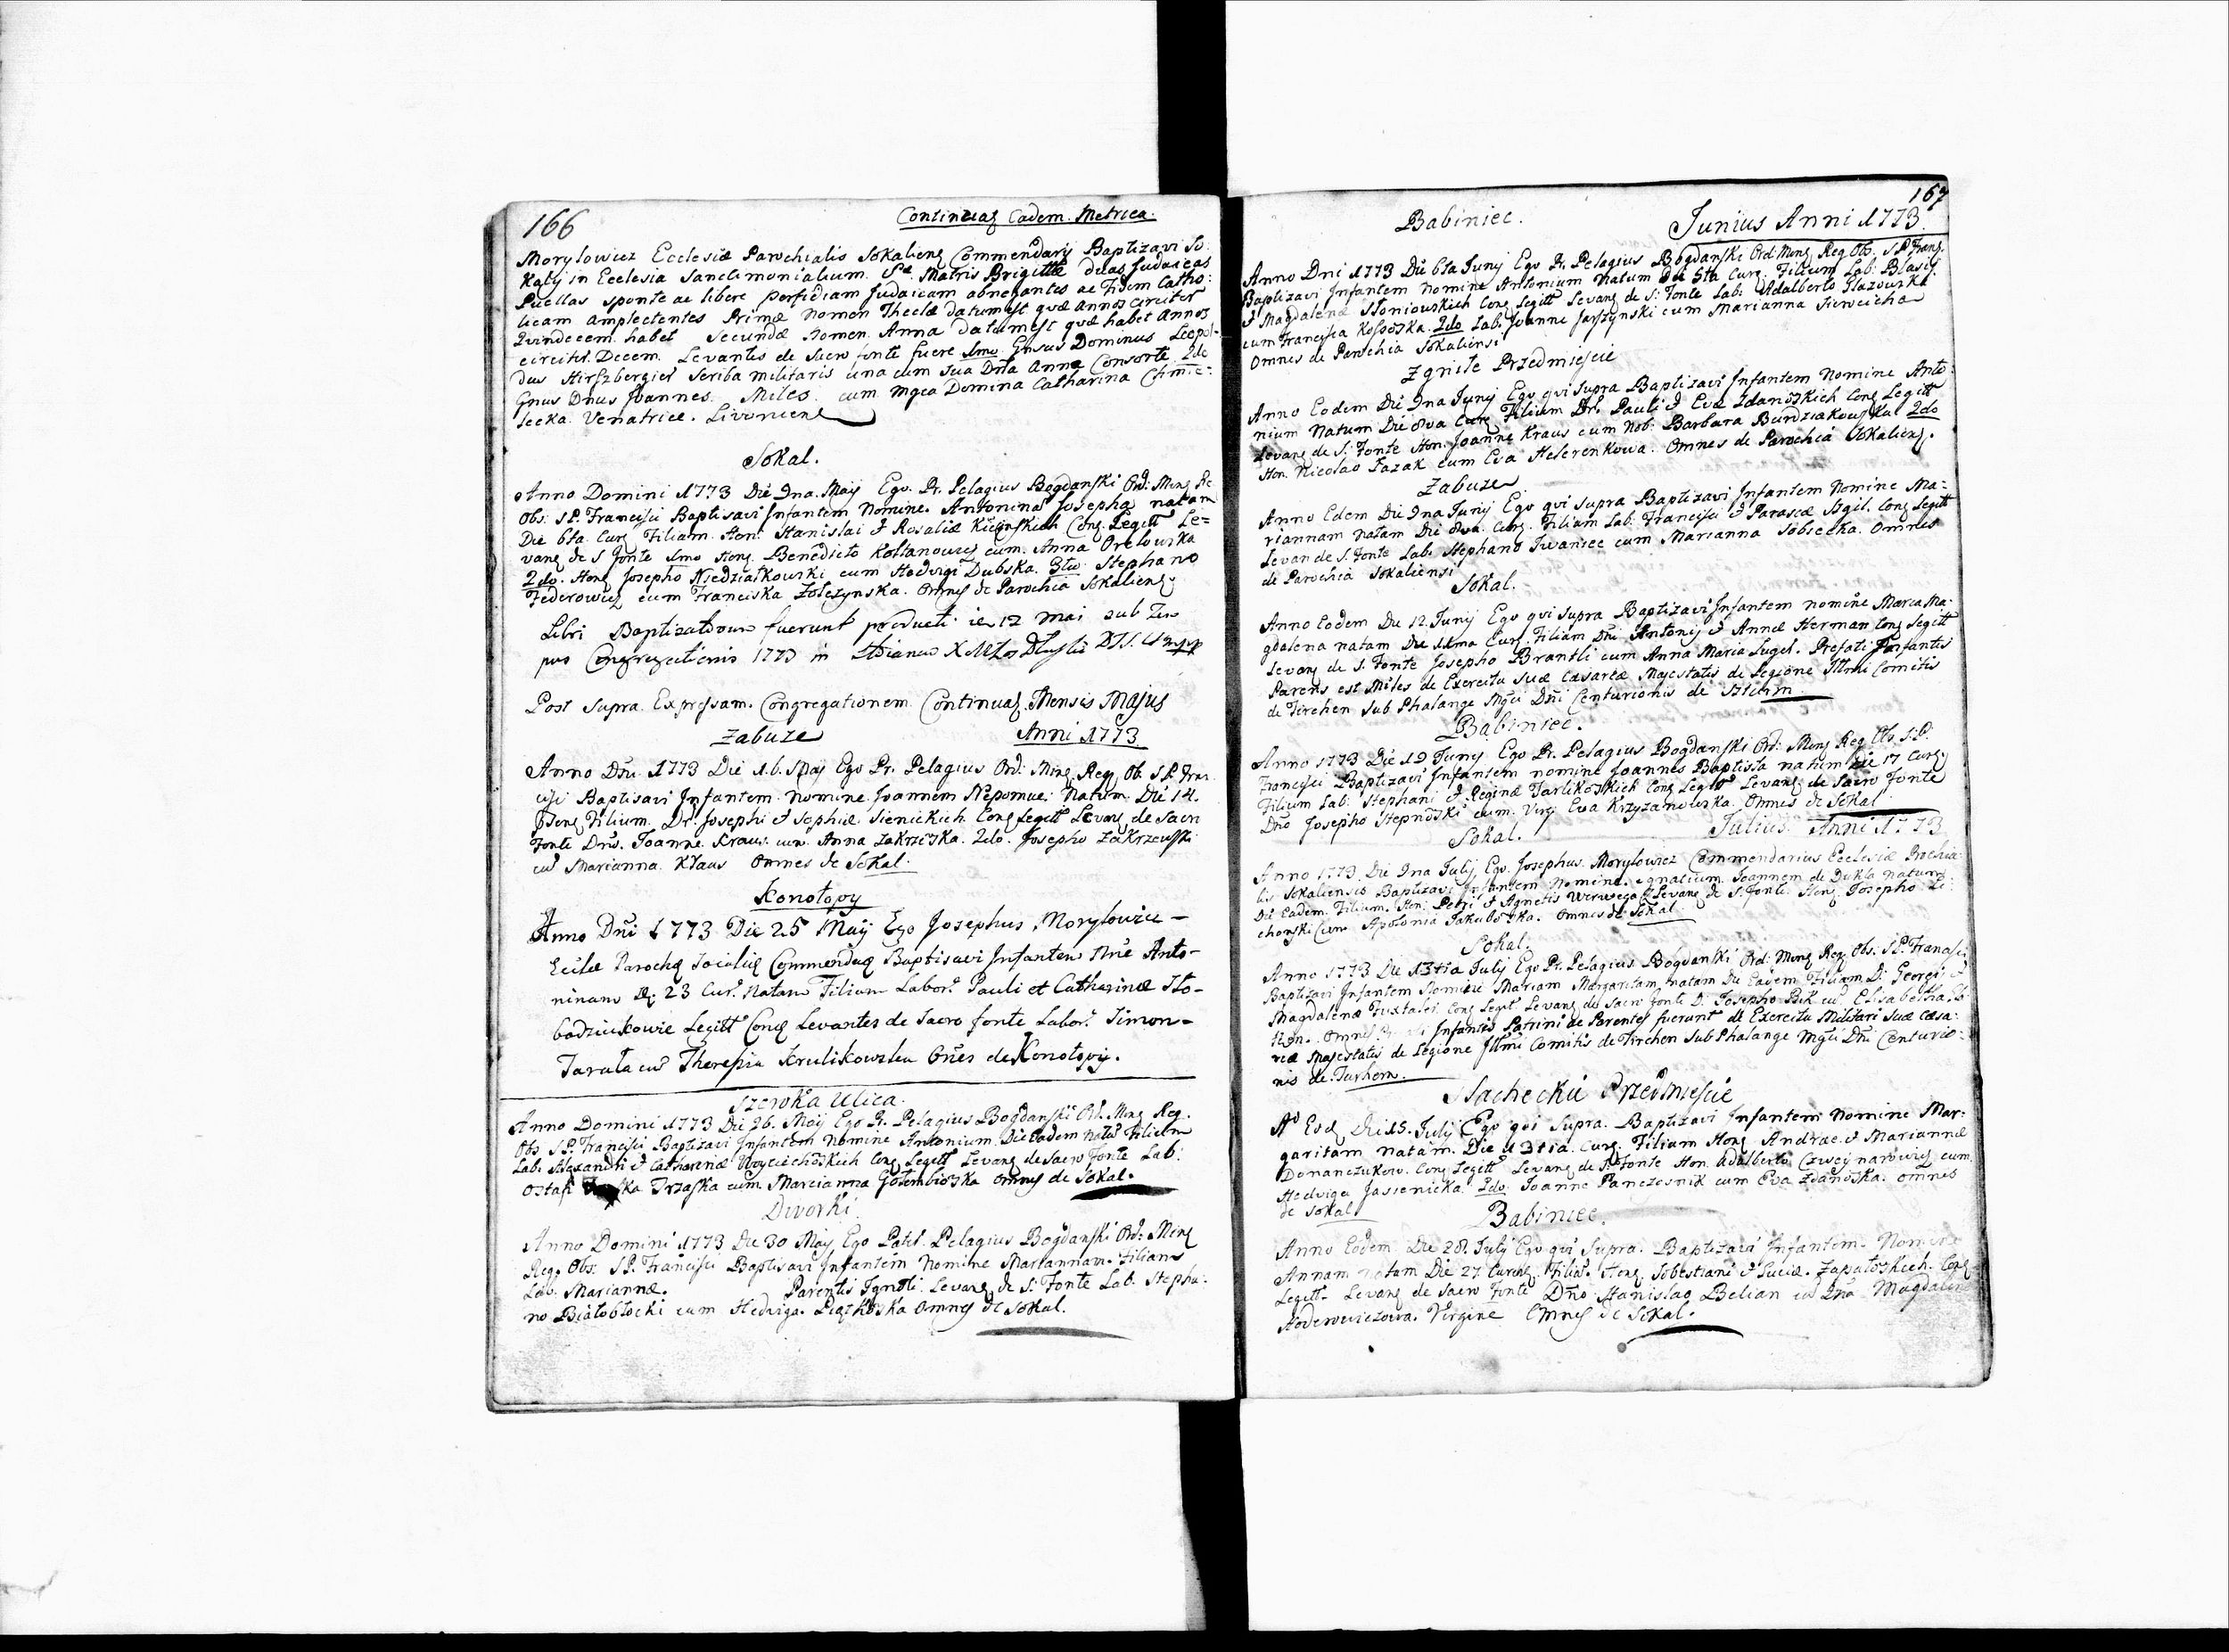 166
Continuaʒ Eadem Metrica.
Morylowicz Ecclesiæ Parochialis Sokalienʒ Commendarij Baptizavi So:
kalij in Ecclesia Sanctimonialium Sæ Matris Brigittæ duas Judaicas
Puellas sponte ac libere perfidiam Judaicam abnegantes ac Fidem Catho:
licam amplectentes Primæ Nomen Theclæ datum est quæ Annos circiter
Quindecem habet Secundæ Nomen Anna datum est quæ habet Annos
circiter Decem. Levantes de Sacro fonte fuere 1mo Gnsus Dominus Leopol-
dus Hirszbergier Scriba militaris una cum sua Dna Anna Consorte 2do
Gnus Dnus Joannes Miles cum Mgca Domina Catharina Chmie:
lecka Venatrice Livoniene
Sokal.
Anno Domini 1773 Die 9na Maij Ego Pr. Pelagius Bogdanski Ord: Minʒ Re
Obs: S P. Francisci Baptisavi Infantem Nomine Antonina Josepha natam
Die 6ta Curʒ Filiam Hon: Stanislai & Rosaliæ Kicinskich Conʒ Legitt Le=
vanʒ de S fonte 1mo Honʒ Benedicto Koltanowicz cum Anna Orlowska
2do Honʒ Josepho Niedziałkowski cum Hedvigi Dubska 3tio Stephano
Federowicz cum Franciska Zołczynska. Omnes de Parochia Sokalienʒ
Libri Baptisatorum fuerunt producti ie 12 Mai sub Tem
pus Congregationis 1773 in
Post Supra Expressam Congregationem Continuaʒ Mensis Majus
Zabuze Anni 1773
Anno Dni 1773 Die 16 Maij Ego Pr. Pelagius Ord: Minʒ Regʒ Ob. S P. Fran
cisi Baptisavi Infantem Nomine Joannem Nepomuc: Natum Die 14.
Filium Dr. Josephi & Sophiæ Sienickich Conʒ Legitt Levanʒ de Sacro
Fonte Dno. Joanne Kraus cum Anna Zakrzeska. 2do Josepho Zakrzewski
cum Marianna Kraus Omnes de Sokal.
Konotopy
Anno Dni 1773 Die 25 Maij Ego Josephus Morylowicz —
Ecclæ Parochʒ Commendʒ Baptisavi Infantem Nne Anto-
ninam 23 Cur. Natam Filiam Labor. Pauli et Catharinæ Sto-
bodziukowie Legitt Conʒ Levantes de Sacro fonte Labor. Simon-
Tarata cum Theresia Krulikowska Ones de Konotopy.
Szeroka Ulica.
Anno Domini 1773 Die 26. Maij Ego Pr. Pelagius Bogdanski Ord. Minʒ Reg.
Obs: S P. Francisci Baptizavi Infantem Nomine Antonium Die Eadem Natum Filium
Lab. Alexandri & Catharinæ Woyciechoskich Conʒ Legitt Levanʒ de Sacro Fonte Lab:
Ostafi Trzaska cum Marcianna Gołembioska Omnes de Sokal.
Dworki.
Anno Domini 1773 Die 30 Maij Ego Pater Pelagius Bogdanski Ord: Minʒ
Reg. Obs: S P. Francisci Baptisavi Infantem Nomine Mariannam Filiam
Lab. Mariannæ. Parentis Ignoti. Levanʒ de S: Fonte Lab. Stepha:
no Białobłocki cum Hedviga Omnes de Sokal.
167
Babiniec. Junius Anni 1773
Anno Dni 1773 Die 6ta Junij Ego Pr. Pelagius Bogdanski Ord: Minʒ Reg. Obs. S P. Franʒ
Baptizavi Infantem Nomine Antonium Natum Die 5ta Curʒ Filium Lab: Blasij
& Magdalenæ Słoniowskich Conʒ Legitt Levanʒ de S: Fonte Lab: Adalberto Glazowska
cum Francisca Kossoska. 2do Lab. Joanne Jarszynski cum Marianna Sieweicha
Omnes de Parochia Sokaliensi
Zgnite Przedmiescie
Anno Eodem Die 9na Junij Ego qui Supra Baptizavi Infantem Nomine Anto:
nium Natum Die 8va Curʒ Filium Dr. Pauli & Evæ Zdanoskich Conʒ Legitt
Levanʒ de S: Fonte Hon. Joanne Kraus cum Nob. Barbara Burdziakowska 2do
Hon. Nicolao Pazak cum Eva Helerenkowa. Omnes de Parochia Sokalienʒ.
Zabuze
Anno Edem Die 9na Junij Ego qui Supra Baptizavi Infantem Nomine Ma=
riannam natam Die 8va Curʒ Filiam Lab. Francisci & Parascæ Sʒgil. Conʒ Legitt
Levan de S. Fonte Lab. Stephano Iwaniec cum Marianna Sobiecka. Omnes
de Parochia Sokaliensi
Sokal.
Anno Eodem Die 12. Junij Ego qui Supra Baptizavi Infantem nomine Maria Ma-
gdalena natam Die 11ma Curʒ Filiam Dni Antonij & Annæ Herman Conʒ Legitt
Levanʒ de S. Fonte Josepho Brantli cum Anna Maria Lugel. Prefati Infantis
Parens est Miles de Exercitu Suæ Cæsareæ Majestatis de Legione Illmi Comitis
de Tirchen Sub Phalange Mgci Dni Centurionis de
Babiniec.
Anno 1773 Die 19 Junij Ego Pr. Pelagius Bogdanski Ord: Minʒ Reg Obs S:P.
Francisci Baptizavi Infantem nomine Joannes Baptista natum Die 17 Curʒ
Filium Lab: Stephani & Reginæ Tarlikoskich Conʒ Legitt Levanʒ de Sacro Fonte
Dno Josepho Stepnoski cum Virg. Eva Krzyzanowska. Omnes de Sokal
Sokal. Julius Anni 1773
Anno 1773 Die 9na Julij Ego Josephus Morylowicz Commendarius Ecclesiæ Prochia
lis Sokaliensis Baptizavi Infantem Nomine Ignatium Joannem de Dukla Natum
Die Eadem Filium Hon: Petri & Agnetis Levanʒ de S. Fonte Honʒ Josepho Le:
chowski Cum Apolonia Jakuboska. Omnes de Sokal
Sokal.
Anno 1773 Die 13tia Julij Ego Pr. Pelagius Bogdanski Ord. Minʒ Reg. Obs: S P. Francisci
Baptizavi Infantem Nomine Mariam Margaritam natam Die Eadem Filiam D: Georgi &
Magdalenæ Conʒ Legitt Levanʒ de Sacro fonte D. Josepho Bek cum Elisabetha
Omnes Infantis Patrini ac Parentes fuerunt de Exercitu Militari Suæ Cæsa:
reæ Majestatis de Legione Illmi Comitis de Tirchen Sub Phalange Mgci Dni Centurio:
nis de Turhem.
Sacheckie Przedmiescie
Ao Eod Die 15. Julij Ego qui Supra. Baptizavi Infantem Nomine Mar:
garitam natam. Die 13tia Curʒ Filiam Honʒ Andreæ & Mariannæ
Domanczukow. Conʒ Legitt Levanʒ de S. Fonte Hon. Adalberto cum
Hedviga Jasienicka 2do Joanne Panczosnik cum Eva Zdanoska. Omnes
de Sokal
Babiniec.
Anno Eodem Die 28. Julij Ego qui Supra. Baptizavi Infantem Nomine
Annam natam Die 27 Curenʒ Filia Honʒ Sebestiani & Luciæ Zapatoskich Conʒ
Legitt Levanʒ de Sacro Fonte Dno Stanislao Belian cum Dna Magdalena
Virgine Omnes de Sokal.